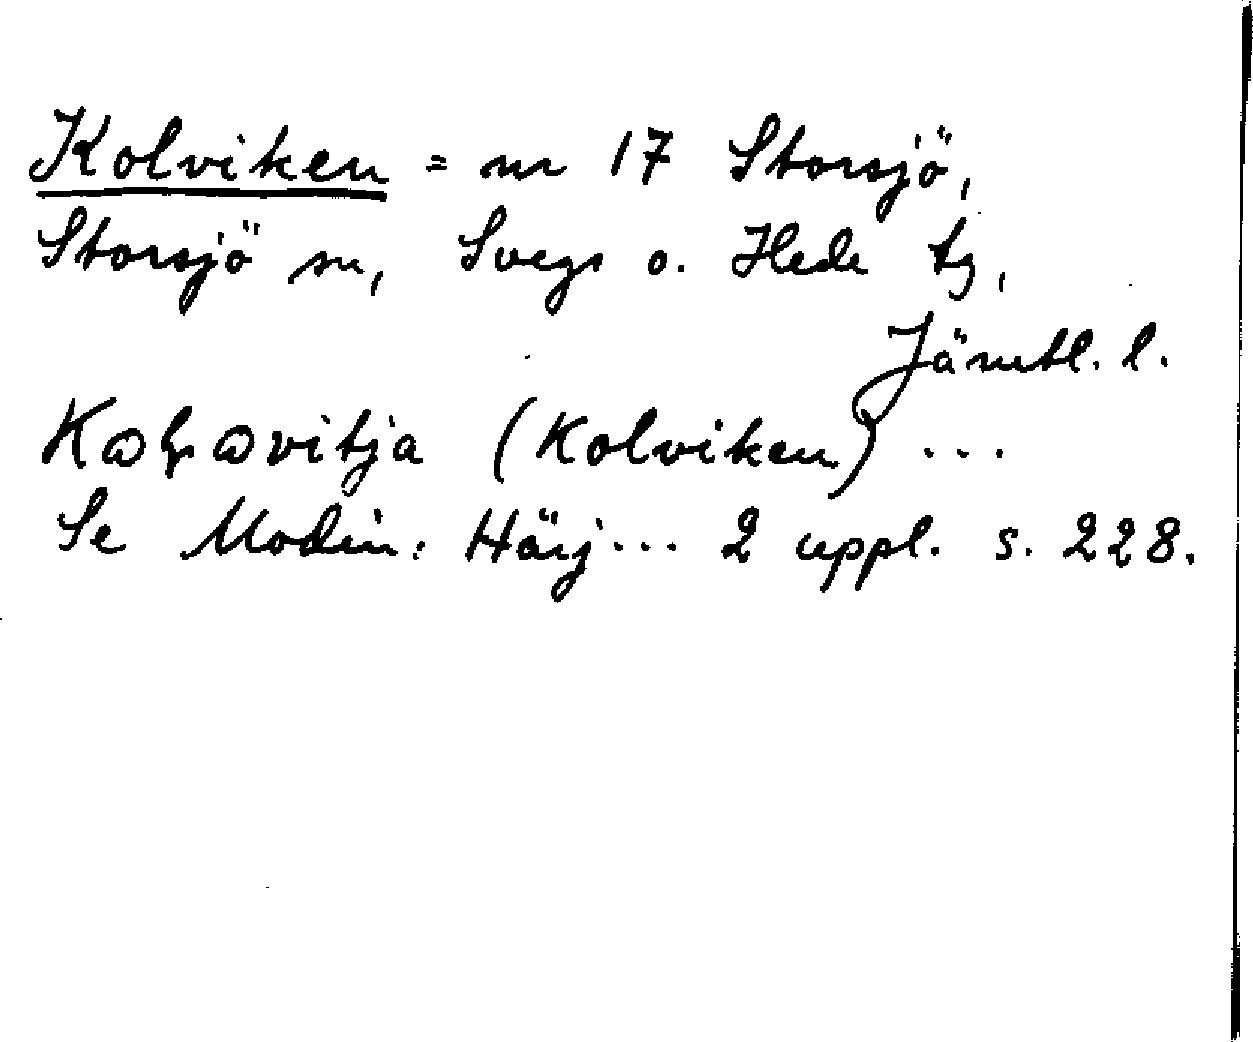 Kolviken = nr 17 Storsjö,
Storsjö sn, Svegs o. Hede tg,
Jämtl. l.
(Kolviken) ...
Se Modin: Härj... 2 uppl. s. 228.